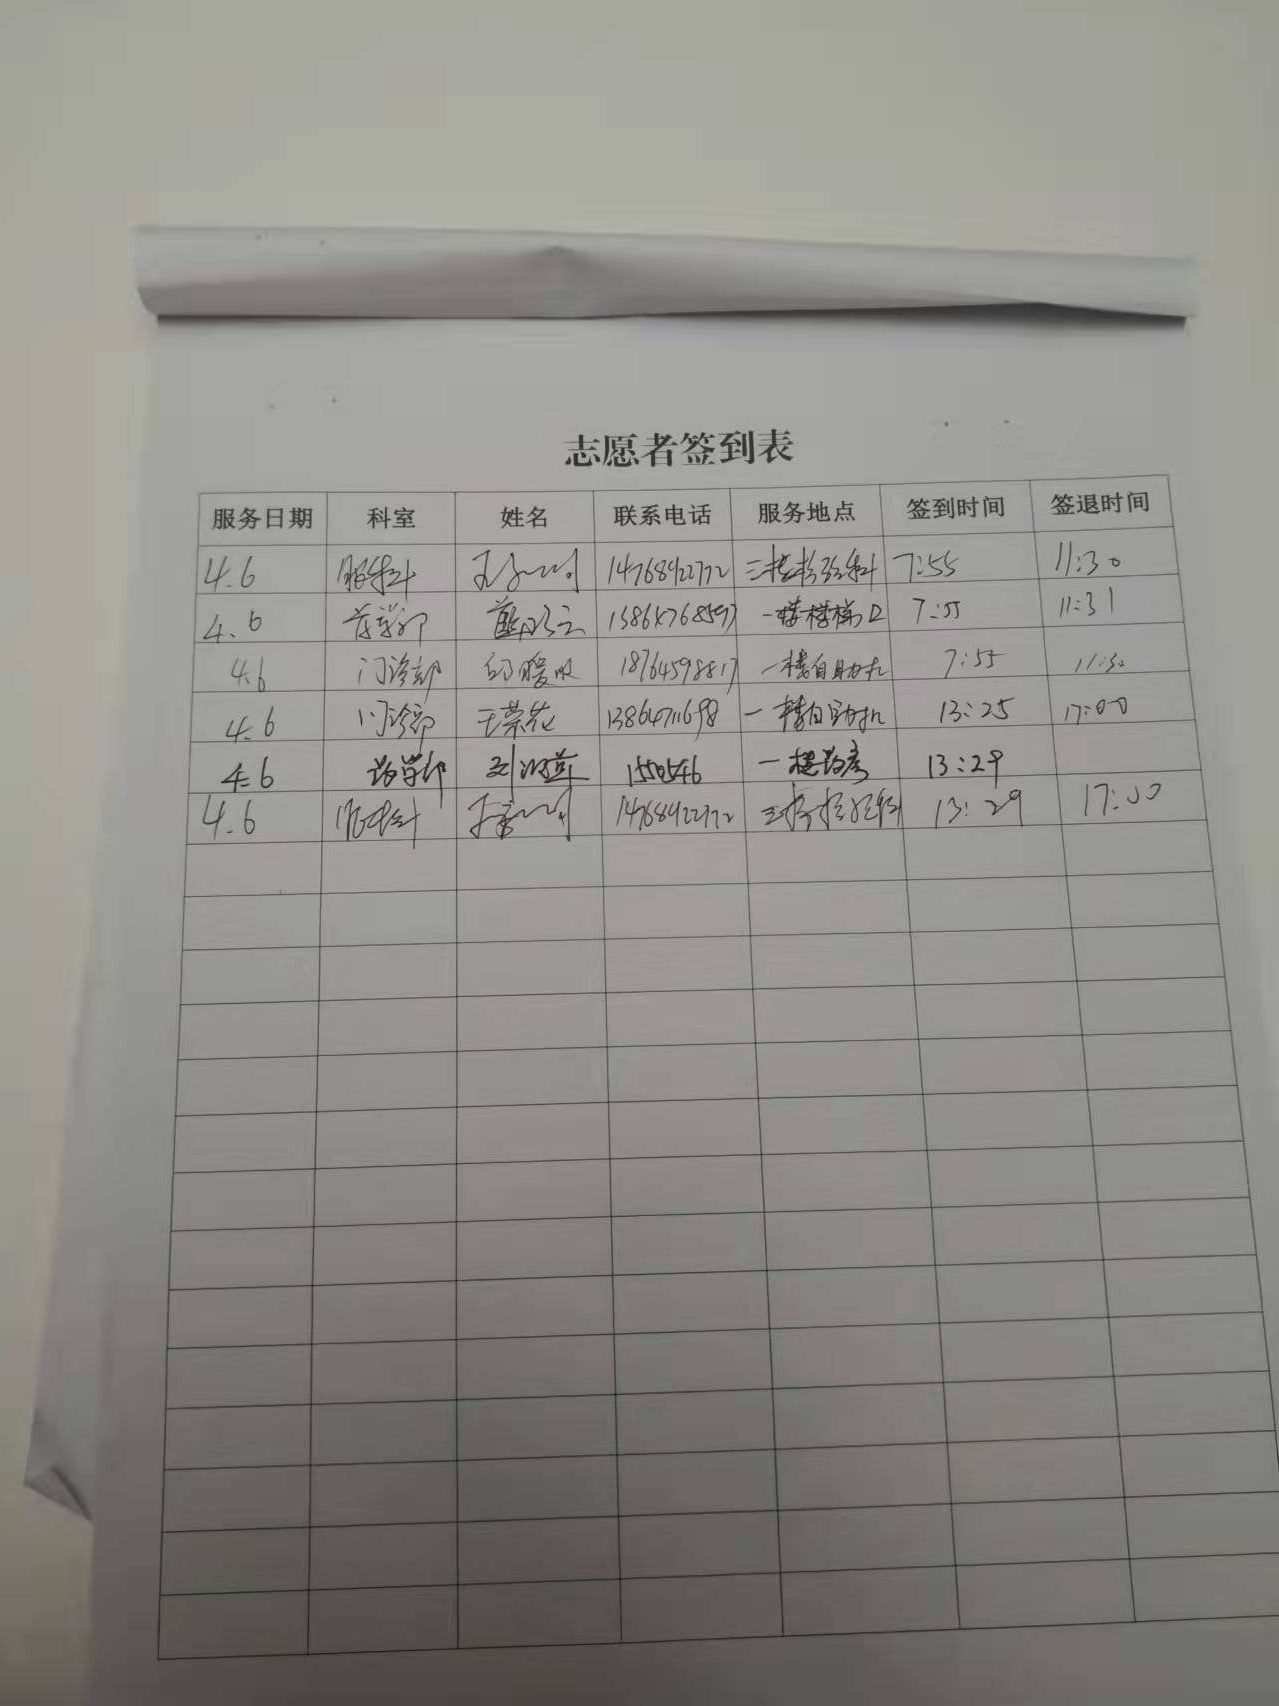 志愿者签到表
服务日期 科室 姓名 联系电话 服务地点 签到时间 签退时间
4.6 眼科 14768922772 三楼 7:55 11:30
4.6 药学部 一楼楼梯口 7:55 11:31
4.6 门诊部 18764598817 一楼自助机 7:55 11:30
4.6 门诊部 王荣花 13864711698 一楼自助机 13:25 17:00
4.6 药学部 1550546 一楼药房 13:29
4.6 眼科 14768922772 13:29 17:00